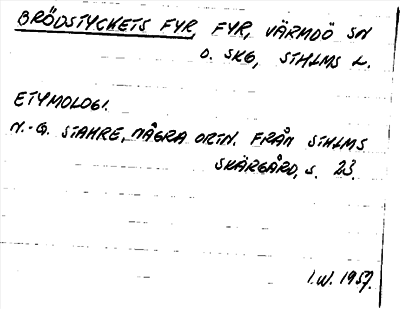 BRÖDSTYCKETS FYR, FYR, VÄRMDÖ SN
Ö. SKG, STHLMS L.
ETYMOLOGI.
N.-G. STAHRE, NÅGRA ORTN. FRÅN STHLMS
SKÄRGÅRD, S. 23.
I.W. 1957.